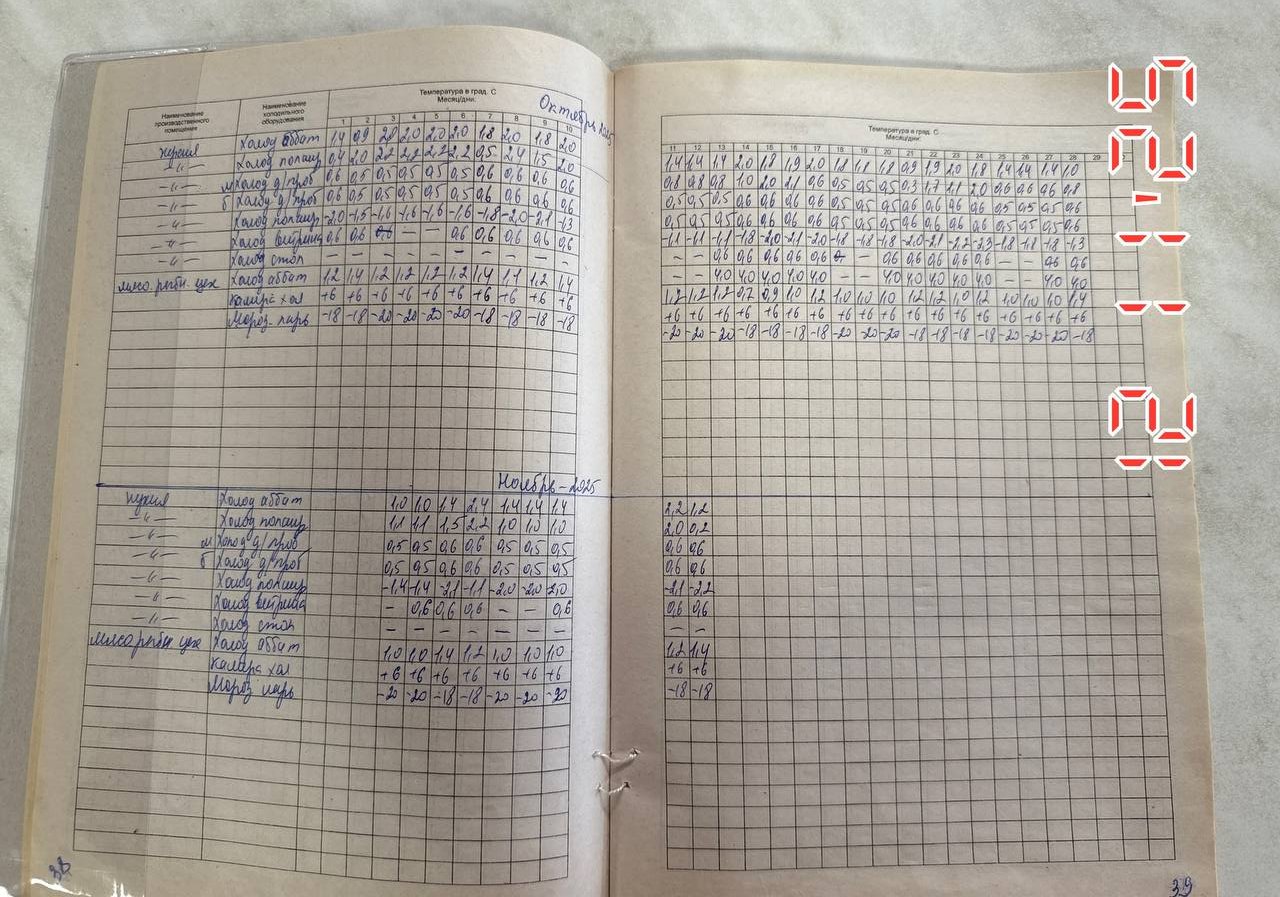 Наименование производственного помещения
Наименование холодильного оборудования
Температура в град. С
Месяц/дни:
Октябрь 2025
1 2 3 4 5 6 7 8 9 10
кухня Холод аббат 1,4 0,9 2,0 2,0 2,0 2,0 1,8 2,0 1,8 2,0
—〃— Холод 0,4 2,0 2,2 2,2 2,2 2,2 0,5 2,4 1,5 2,0
—〃— м Холод д/проб 0,6 0,5 0,5 0,5 0,5 0,5 0,6 0,6 0,6 0,6
—〃— б Холод д/проб 0,6 0,5 0,5 0,5 0,5 0,5 0,6 0,6 0,6 0,6
—〃— Холод -2,0 -1,5 -1,6 -1,6 -1,6 -1,6 -1,8 -2,0 -2,1 -1,3
—〃— Холод витрина 0,6 0,6 — — 0,6 0,6 0,6 0,6 0,6
—〃— Холод стол — — — — — — — — — —
мясо рыбн. цех Холод аббат 1,2 1,4 1,2 1,2 1,2 1,2 1,4 1,1 1,2 1,4
Камера хол +6 +6 +6 +6 +6 +6 +6 +6 +6 +6
Мороз. ларь -18 -18 -20 -20 -20 -20 -18 -18 -18 -18
Ноябрь – 2025
кухня Холод аббат 1,0 1,0 1,4 2,4 1,4 1,4 1,4
—〃— Холод 1,1 1,1 1,5 2,2 1,0 1,0 1,0
—〃— м Холод д/проб 0,5 0,5 0,6 0,6 0,5 0,5 0,5
—〃— б Холод д/проб 0,5 0,5 0,6 0,6 0,5 0,5 0,5
—〃— Холод -1,4 -1,4 -2,1 -1,1 -2,0 -2,0 -2,0
—〃— Холод витрина — 0,6 0,6 0,6 — — 0,6
—〃— Холод стол — — — — — — —
мясо рыбн цех Холод аббат 1,0 1,0 1,4 1,2 1,0 1,0 1,0
Камера хол +6 +6 +6 +6 +6 +6 +6
Мороз ларь -20 -20 -18 -18 -20 -20 -20
38
Температура в град. С
Месяц/дни:
11 12 13 14 15 16 17 18 19 20 21 22 23 24 25 26 27 28 29
1,4 1,4 1,4 2,0 1,8 1,9 2,0 1,8 1,8 1,8 0,9 1,9 2,0 1,8 1,4 1,4 1,4 1,0
0,8 0,8 0,8 1,0 2,0 2,1 0,6 0,5 0,5 0,5 0,3 1,7 2,1 2,0 0,6 0,6 0,6 0,8
0,5 0,5 0,5 0,6 0,6 0,6 0,6 0,5 0,5 0,5 0,6 0,6 0,6 0,6 0,5 0,5 0,5 0,6
0,5 0,5 0,5 0,6 0,6 0,6 0,6 0,5 0,5 0,5 0,6 0,6 0,6 0,6 0,5 0,5 0,5 0,6
-1,1 -1,1 -1,1 -1,8 -2,0 -2,1 -2,0 -1,8 -1,8 -1,8 -2,0 -2,1 -2,2 -2,3 -1,8 -1,8 -1,8 -1,3
— — 0,6 0,6 0,6 0,6 0,6 — 0,6 0,6 0,6 0,6 0,6 — — 0,6 0,6
— — 4,0 4,0 4,0 4,0 4,0 — — 4,0 4,0 4,0 4,0 4,0 — — 4,0 4,0
1,2 1,2 1,2 0,7 0,9 1,0 1,2 1,0 1,0 1,0 1,2 1,2 1,0 1,2 1,0 1,0 1,0 1,4
+6 +6 +6 +6 +6 +6 +6 +6 +6 +6 +6 +6 +6 +6 +6 +6 +6 +6
-20 -20 -20 -18 -18 -18 -18 -20 -20 -20 -18 -18 -18 -18 -20 -20 -20 -18
2,2 1,2
2,0 0,2
0,6 0,6
0,6 0,6
-2,1 -2,2
0,6 0,6
— —
1,2 1,4
+6 +6
-18 -18
39
12 11-25